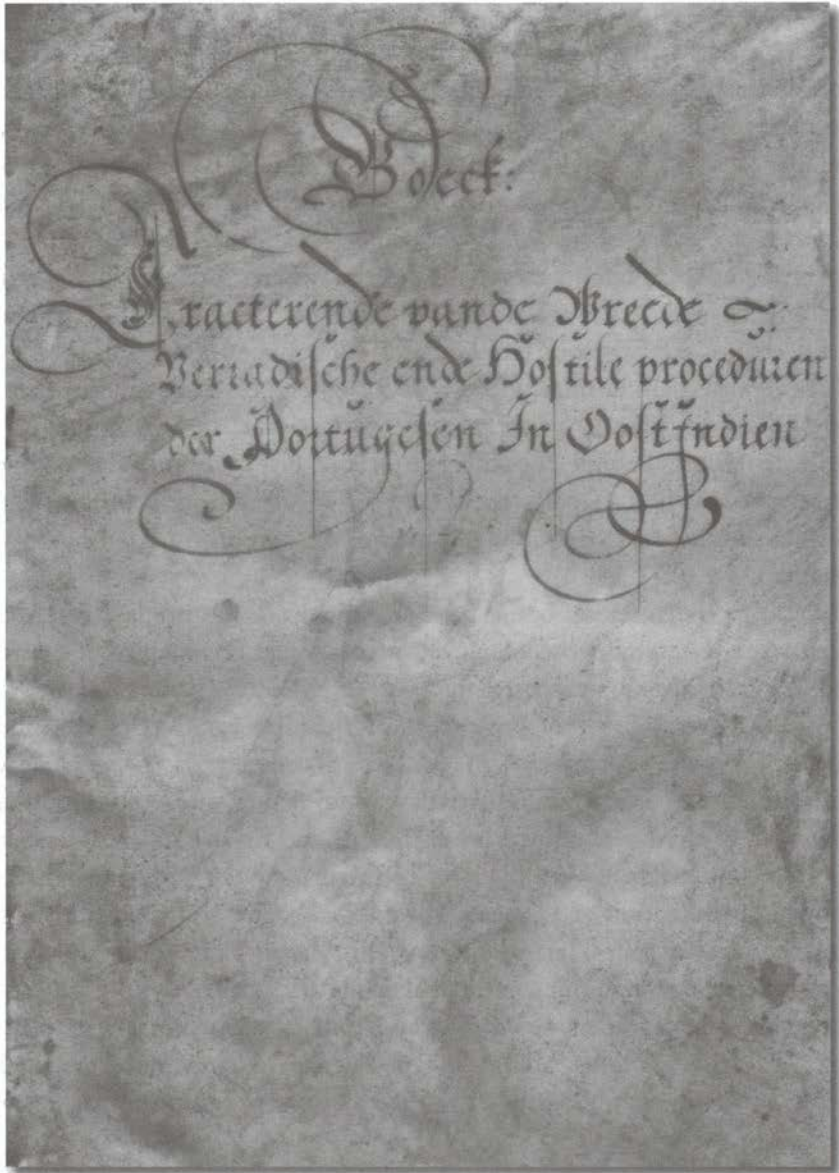 Boeck:
Tracterende vande Wrede
Verradische ende Hostile proceduren
der Portugesen In Oost Indien